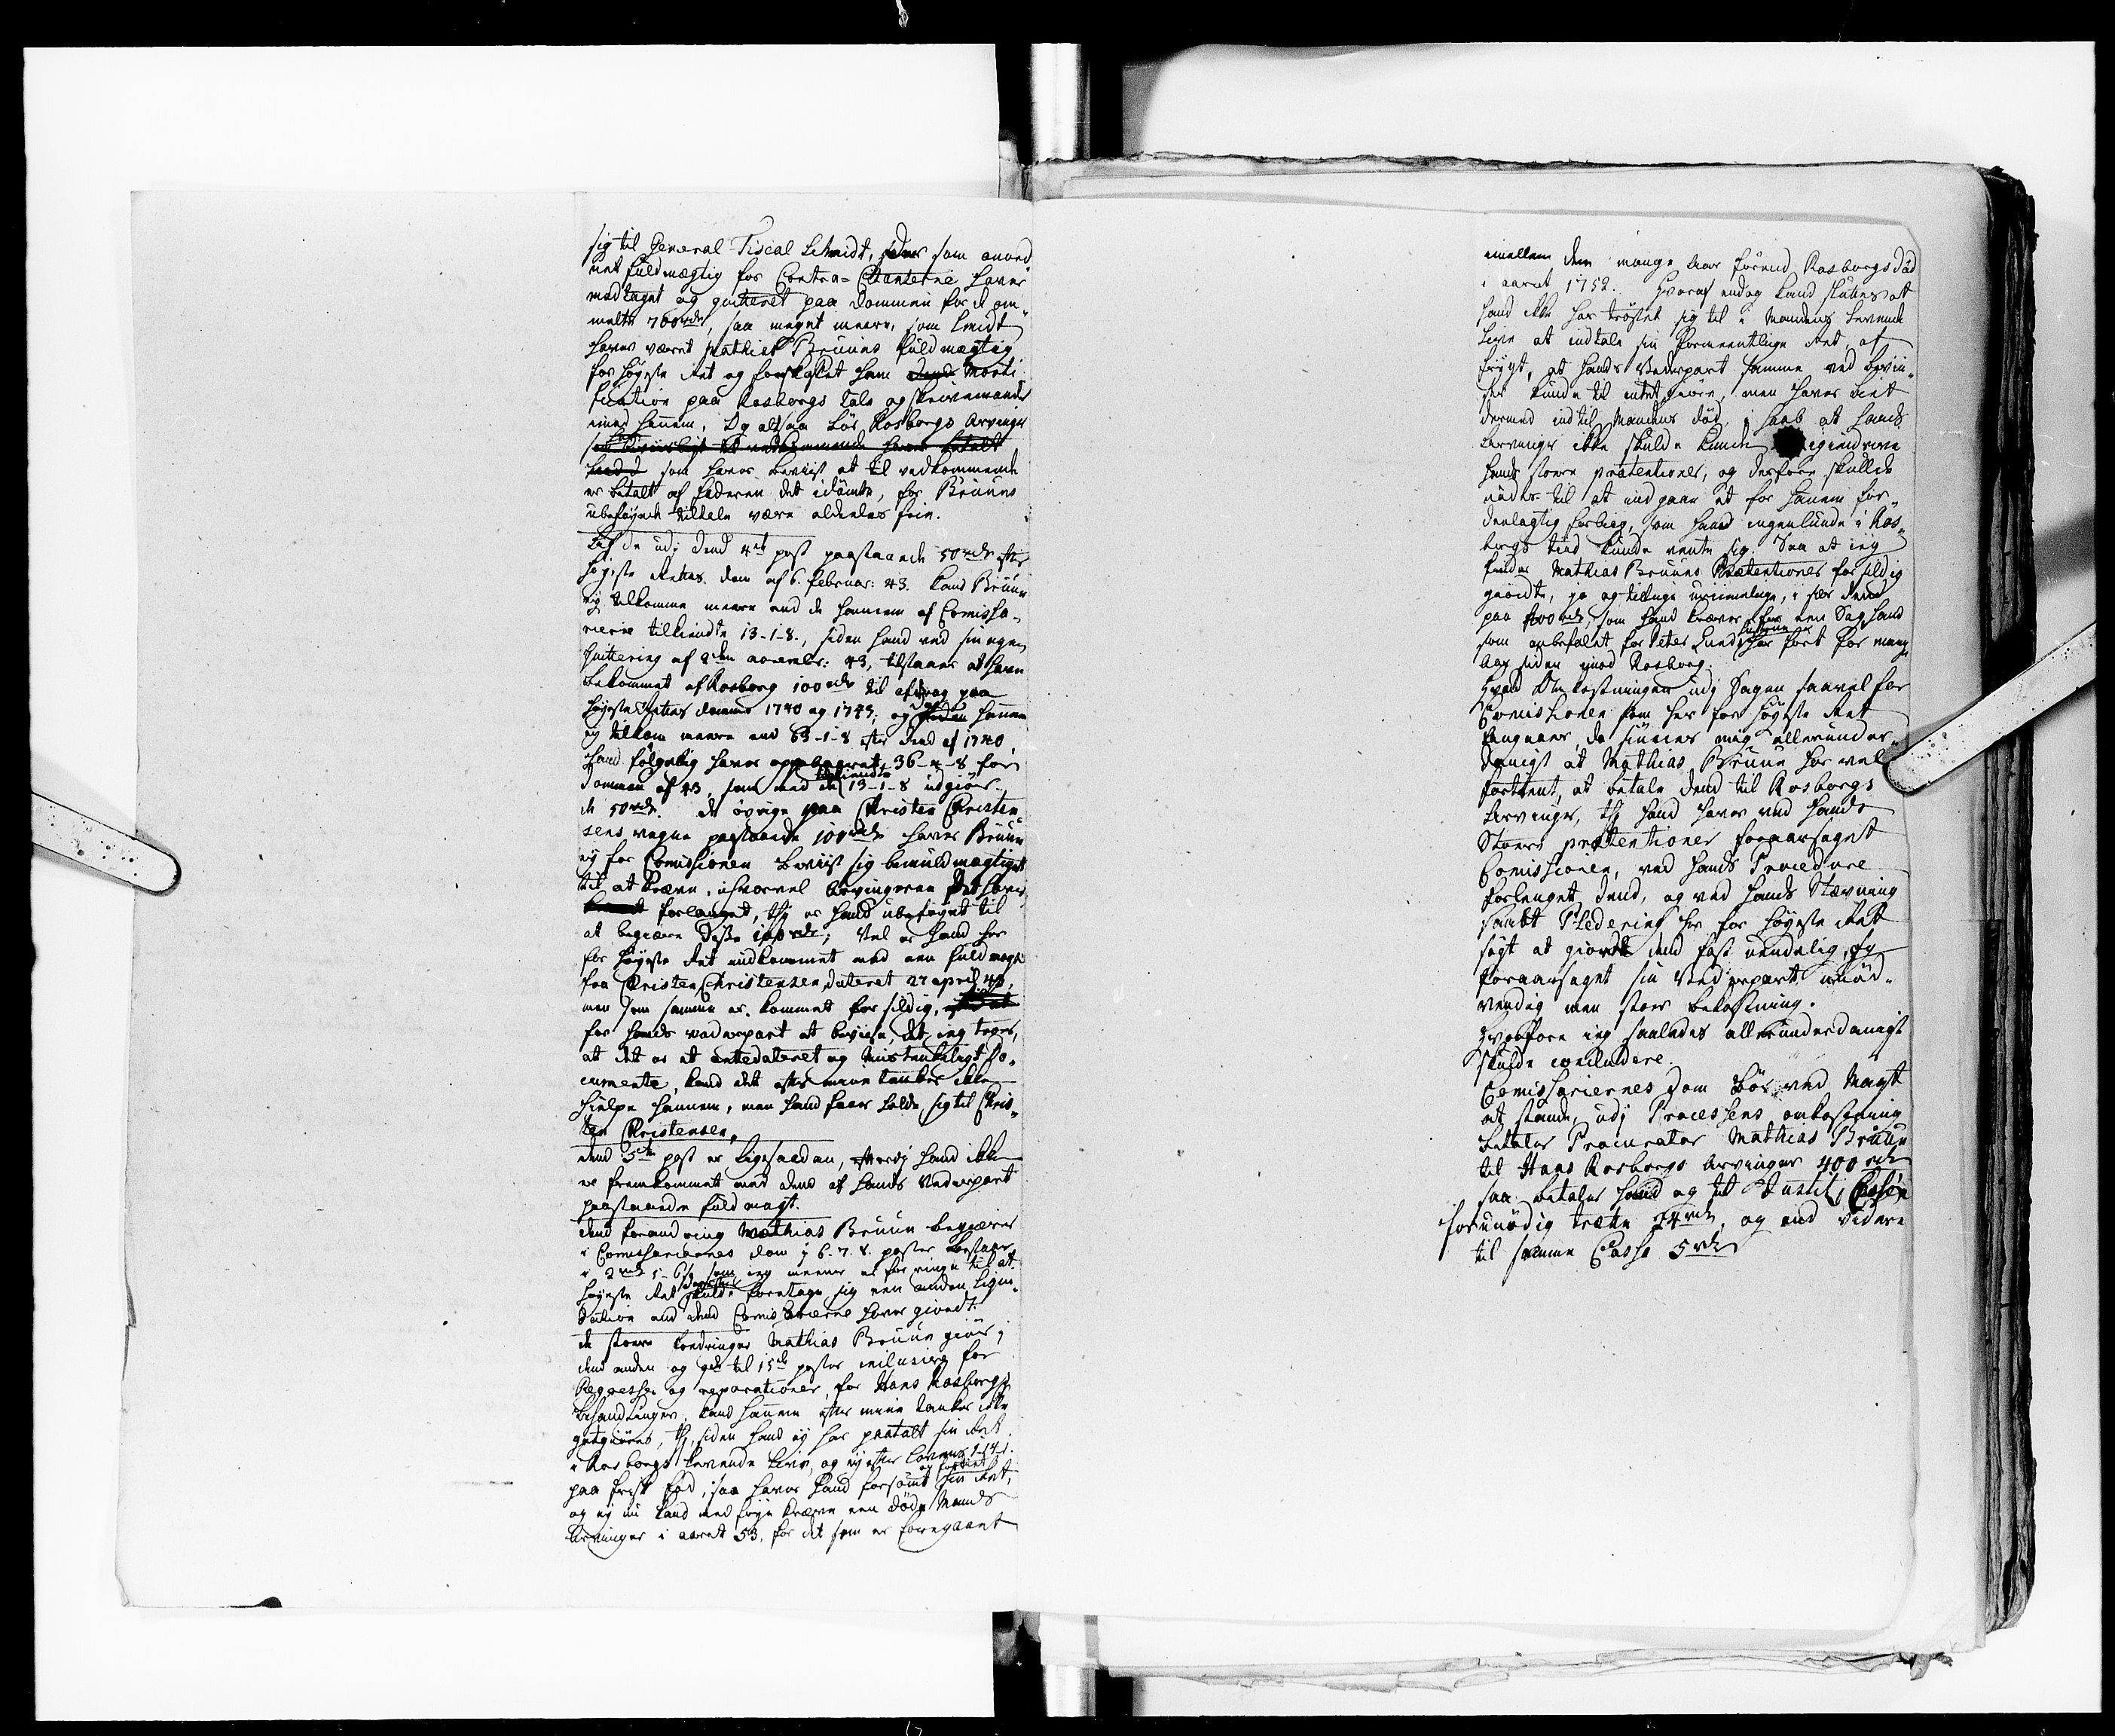 sig til General-Fiscal Schmidt, som anord
net fuldmægtig for Contra-Citanterne haver
modtaget og qviteret paa Dommen for de om
melte 700 rdr, saa meget meere, som Smidt
haver været Mathias Bruuns fuldmægtig
for Høyeste Ret og forskaffet ham Morti
fication paa Rosborgs tale og skrivemaade
imod hannem. Og altsaa bør Rosborgs Arvinger
som haver beviist at til vedkommende
er betalt af faderen det idømte, for Bruuns
ubeføyede tiltale være aldeeles frie.
Af de udj dend 4de post paastaaende 50 rdr efter
Høyeste Rettes dom af 6. februar: 43. kand Bruun
ey tilkomme meere end de hannem af Comissa-
rierne tilkiendte 13-1-8., siden hand ved sin egen
qvittering af 2den novembr: 43, tilstaaer at have
bekommet af Rosborg 100 rdr til afdrag paa
Høyeste Rettes domme 1740 og 1743; og hannem
ey tilkom meere end 63-1-8 efter dend af 1740,
hand følgelig haver oppebaaret 36-4-8 for
dommen af 43, som med de tilkiendte 13-1-8 udgiør
de 50 rdr. De øvrige paa Christen Christen-
sens vegne paastaaende 100 rdr haver Bruun
ey for Comissionen beviist sig befuldmægtiget
til at kræve, ihvorvel Arvingerne det haver
forlanget, thj er hand ubeføyet til
at begiære disse 100 rdr; Vel er hand her
for Høyeste Ret indkommet med een fuldmagt
fra Christen Christensen, dateret 27 april 48,
men som samme er kommet for sildig,
for hands vederpart at beviise, det jeg troer,
at det er et antedateret og mistænkeligt Do-
cumente, kand det efter miine tanker ikke
hielpe hannem, men hand faar holde sig til Chris-
ten Christensen.
dend 5te post er ligesaadan, efterdj hand ikke
er fremkommet med dend af hands Vederpart
paastaaende fuldmagt.
dend forandring Mathias Bruun begiærer
i Comissariernes dom i 6. 7. 8. poster bestaar
i 2 rdr 5- 6 s, som jeg meener er for ringe til at
Høyeste Ret derfor skulde foretage sig een anden liqvi-
dation end dend Comissarierne haver giordt.
de store fordringer Mathias Bruun giør i
dend anden og 9de til 15de poster inclusive for
Regresser og reparationer, for Hans Rosborgs
behandlinger, kand hannem efter miine tanker ikke
godgiøres, thj siden hand ey har paatalt sin Ret
i Rosborgs levende Live, og ey efter Lovens 1-14-1.
paa frisk fod, saa haver hand forsømt og forbiet sin Ret,
og ey nu kand med føye kræve een død Mands
Arvinger i aaret 53, for det som er foregaaet
imellem dem mange Aar førend Rosborgs død
i aaret 1752. Hvoraf endog kand sluttes at
hand ikke har trøstet sig til i Mandens levende
Live at indtale sin formeentlige Ret, af
frygt, at hands Vederpart samme ved beviis-
er kunde til intet giøre, men haver biet
dermed indtil Mandens død, i haab at hands
Arvinger ikke skulde kunde igiendrive
hands store prætentioner, og derfore skullde
nødes til at indgaae et for hannem for-
deelagtig forliig, som hand ingenlunde i Ros-
borgs tiid kunde vente sig. Saa at jeg
finder Mathias Bruuns Prætentioner for sildig
giordte, ja og tillige urimmelige, i sær dend
paa 400 rdr, som hand kræver for een Sag hand
som anbefalet for Peter Lind har ført for mange
Aar siden imod Rosborg.
Hvad Omkostningen udj Sagen saavel for
Comissionen som her for Høyeste Ret
angaaer, da siunes mig allerunder-
danigst at Mathias Bruun har vel
fortient, at betale dend til Rosborgs
Arvinger, thj hand haver ved hands
Store prætentioner foraarsaget
Comissionen, ved hands Procedure
forlenget dend, og ved hands Stævning
samt Pledering her for Høyeste Ret
søgt at giøre dend fast uendelig, og
foraarsaget sin Vederpart unød-
vendig men stor bekostning.
Hvorfore jeg saaledes allerunderdanigst
skulde concludere.
Comissariernes Dom bør ved Magt
at stande, udj Processens omkostning
betaler Procurator Mathias Bruun
til Hans Rosborgs Arvinger 400 rdr
saa betaler hand og til Justits Cassen
for unødig trætte 74 rdr, og end videre
til samme Casse 5 rdr